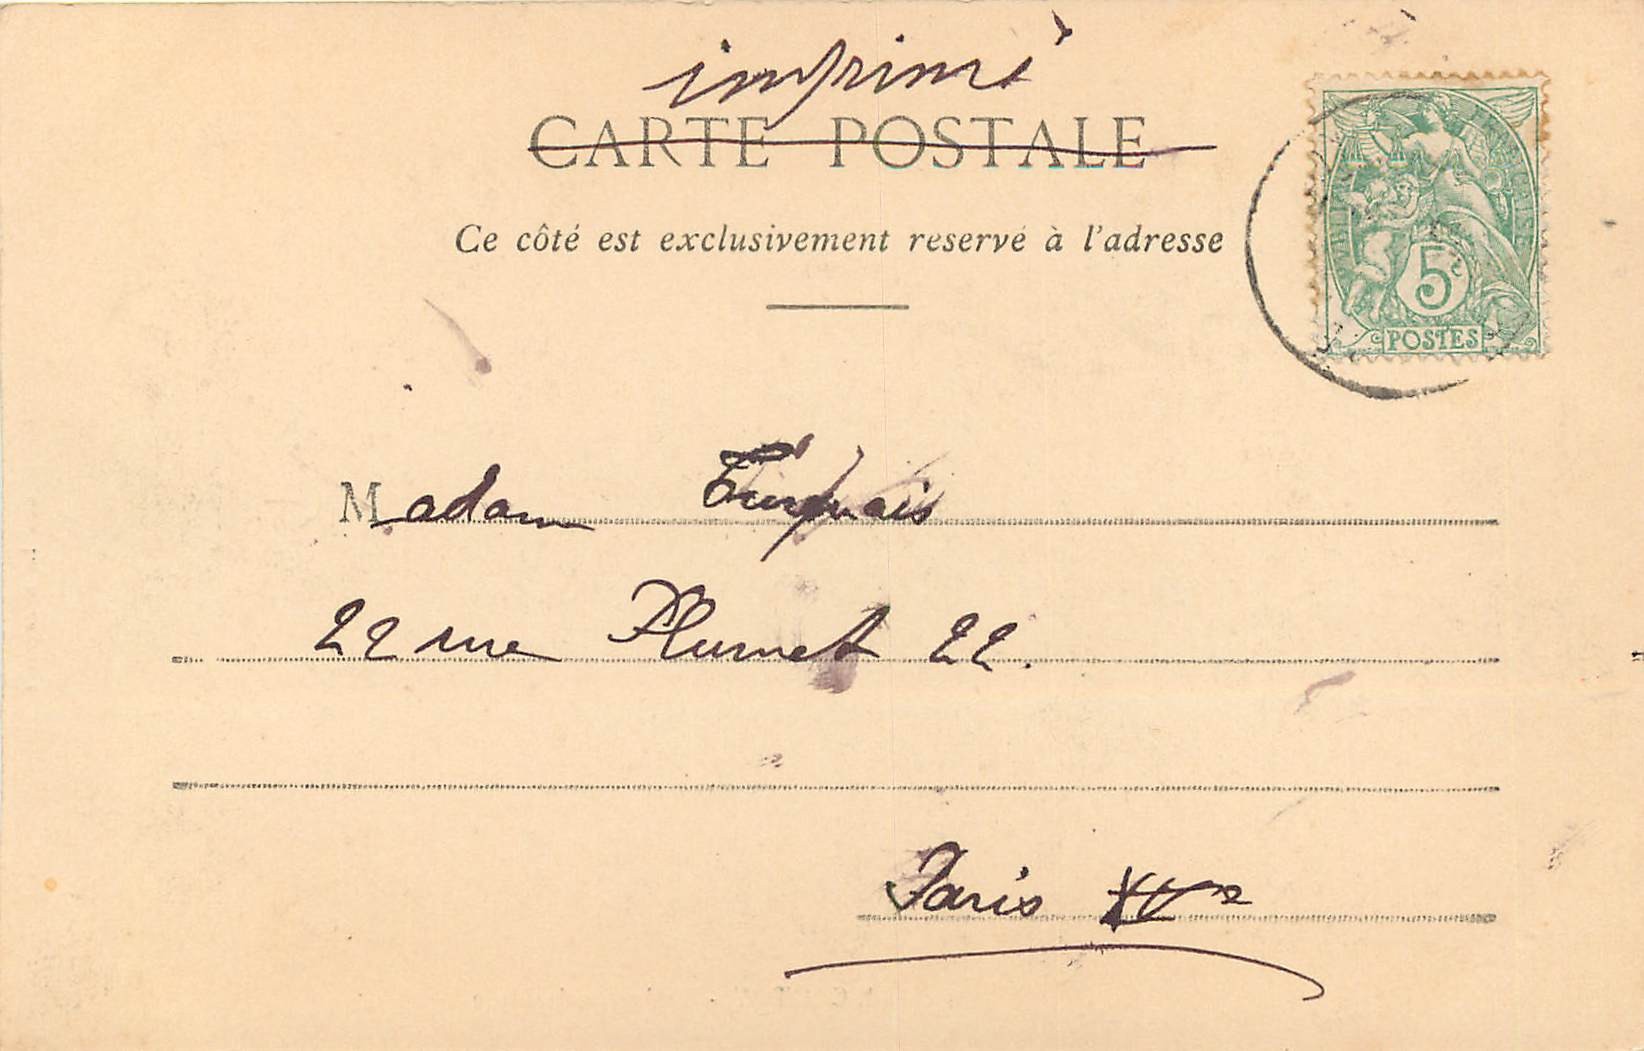 imprimé
CARTE POSTALE
Ce côté est exclusivement reservé à l'adresse
5
POSTES
Madame
22 rue Plumet 22.
Paris XVe